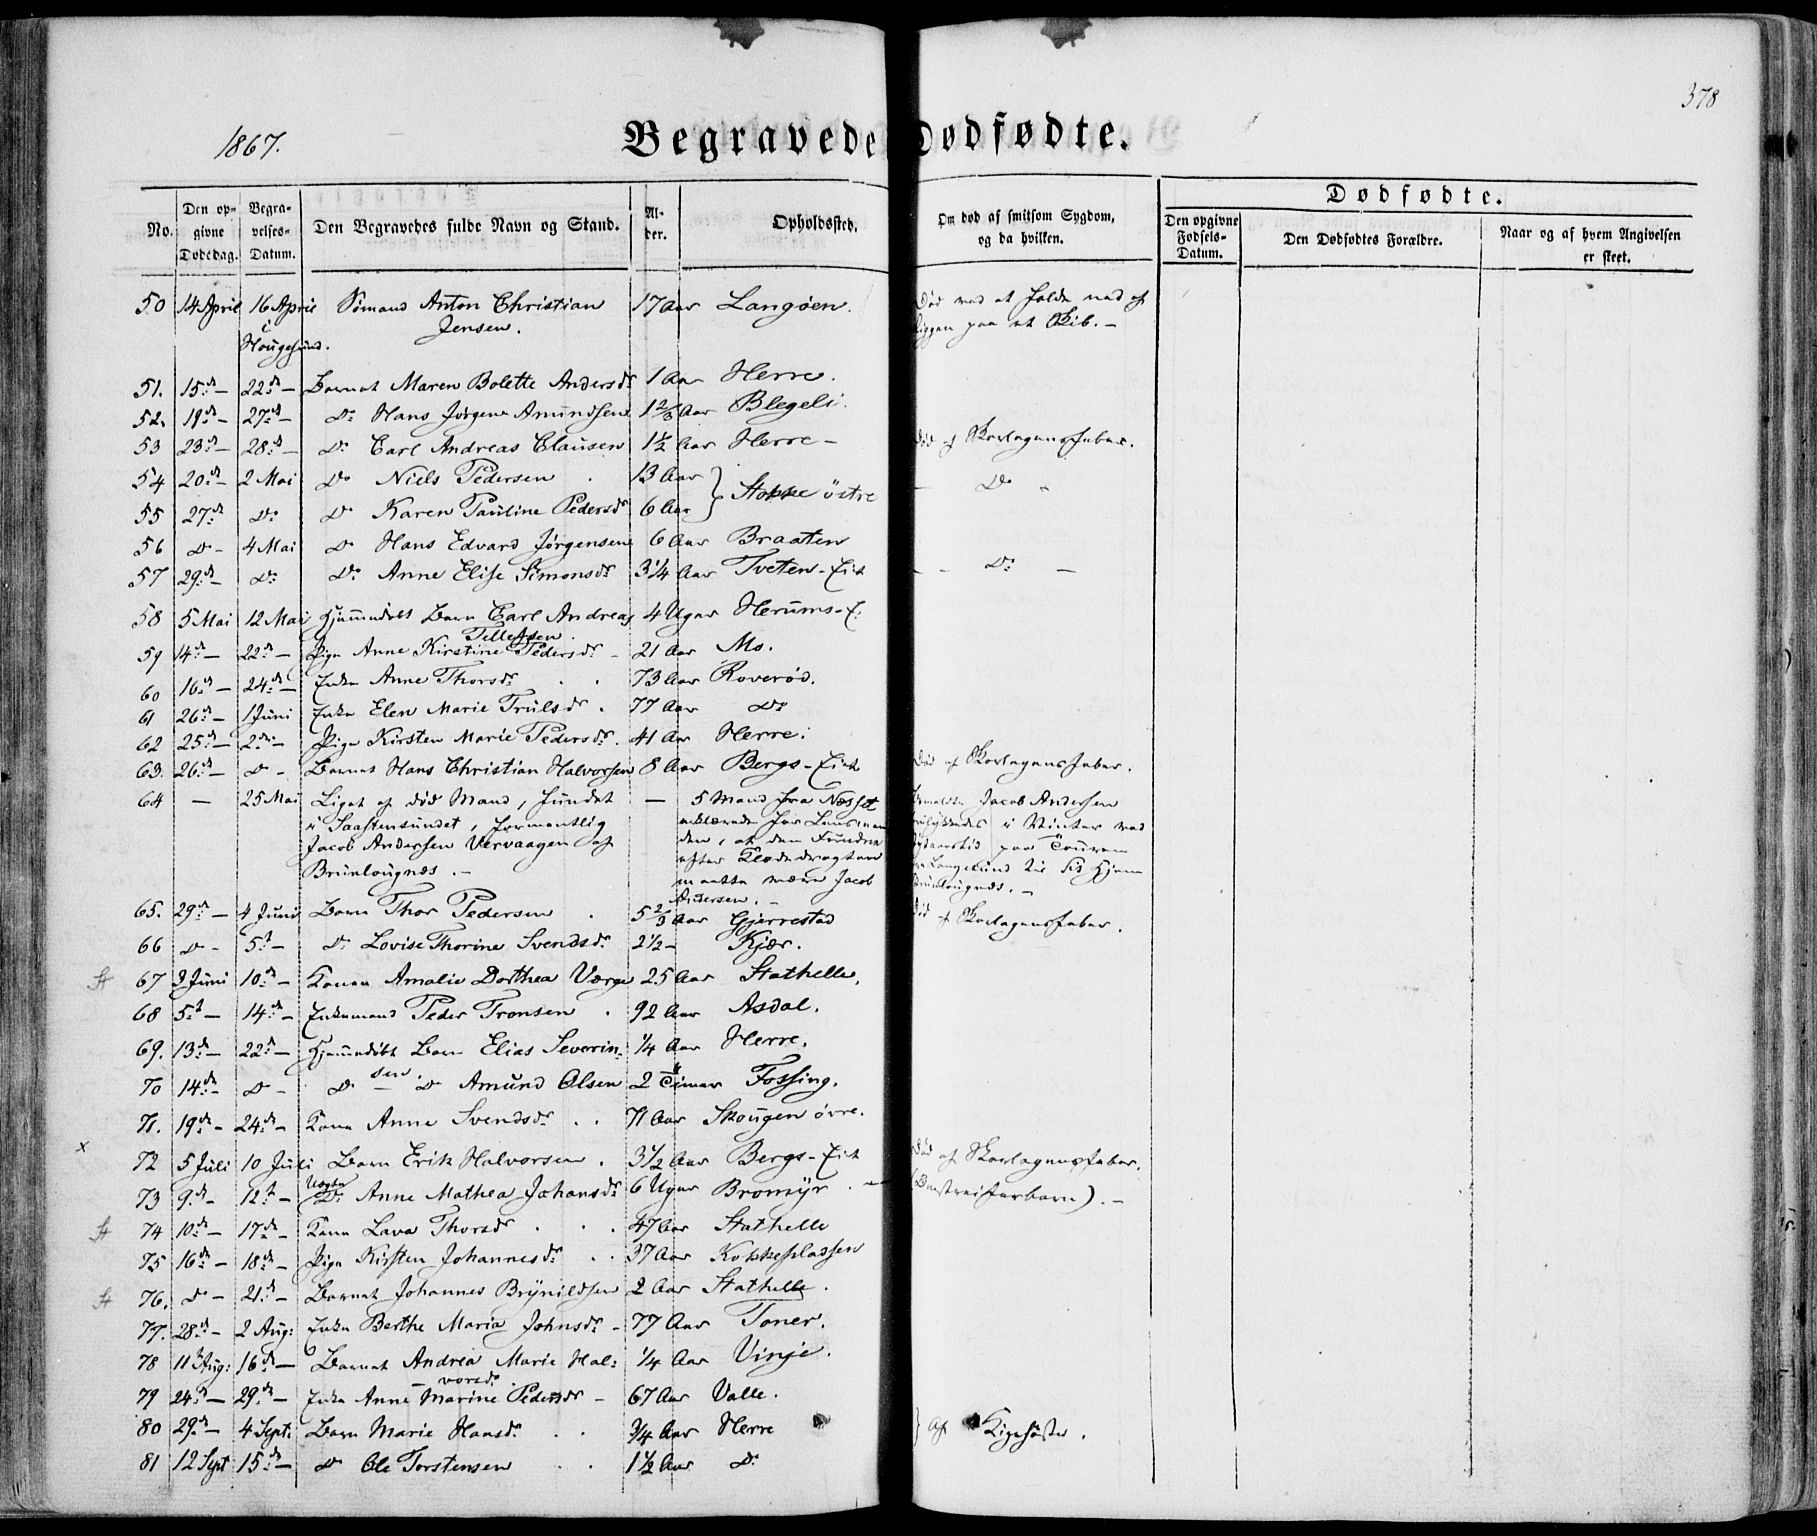 378
1867.
Begravede Dødfødte.
No. Den opgivne Dødedag. Begravelses-Datum. Den Begravedes fulde Navn og Stand. Alder. Opholdssted. Om død af smitsom Sygdom, og da hvilken. Den opgivne Fødsels-Datum. Den Dødfødtes Forældre. Naar og af hvem Angivelsen er skeet.
Dødfødte.
50 14 April 16 April i Hougesund. Sømand Anton Christian Jensen. 17 Aar Langøen. Død ved at falde ned af Riggen paa et Skib. -
51. 15de - 22de - Barnet Maren Bolette Andersdr 1 Aar Herre.
52. 19de - 27de - Do Hans Jørgen Amundsen 1 2/3 Aar Blegeli.
53 23de - 28de - Do Carl Andreas Clausen 1 1/2 Aar Herre - Død af Skarlagensfeber.
54 20de - 2 Mai Do Niels Pedersen 13 Aar } Stokke östre - Do "
55 27de Do Do Karen Pauline Pedersdr 6 Aar
56 Do - 4 Mai Do Hans Edvard Jørgensen 6 Aar Braaten
57 29de - Do Do Anne Elise Simonsdr 3 1/4 Aar Tveten-Eiet - - Do -
58 5 Mai 12 Mai Hjemmedøbt Barn Carl Andreas Tellefsen. 4 Uger Herums-E:
59 14de - 22de - Pige Anne Kirstine Pedersdr - 21 Aar Mo.
60 16de - 24de - Enke Anne Thorsdr . . 73 Aar Roverød.
61 26de - 1 Juni Enke Elen Marie Trulsdr . 77 Aar Do
62 25de - 2den - Pige Kirsten Marie Pedersdr. 41 Aar Herre.
63. 26de - Do - Barnet Hans Christian Halvorsen 8 Aar Bergs-Eiet Død af Skarlagensfeber.
64 - 25 Mai Liget af død Mand, fundet i Saastensundet, formentlig Jacob Andersen Vervaagen af Brunlougnæs. - - 5 Mand fra Næsset erklærede for Lensmanden, at den Fundne efter Klædedragten maatte være Jacob Andersen. - Anmeldte Jacob Andersen forulykkedes i Vinter ved paa Touren fra Langesund til sit Hjem Brunlougnæs. -
65. 29de - 4 Juni Barn Thor Pedersen . 5 2/3 Aar Gjerrestad Død af Skarlagensfeber.
66 Do - 5te - Do Lovise Thorine Svendsdr 2 1/2 - Kjær.
St 67 3 Juni 10de - Konen Amalie Dorthea Værge 25 Aar Stathelle.
68 5te - 14de - Enkemand Peder Tronsen . 92 Aar Asdal.
69. 13de - 22de - Hjemmedøbt Barn Elias Severinsen. 1/4 Aar Herre.
70 14de - Do - Do - Do Amund Olsen 2 Timer Fossing.
71. 19de - 24de - Kone Anne Svendsdr . . 71 Aar Skougen øvre.
x 72 5 Juli 10 Juli Barn Erik Halvorsen . 3 1/2 Aar Bergs-Eiet Død af Skarlagensfeber.
73 9de - 12te - Uægte Do Anne Mathea Johansdr 6 Uger Bromyr. - (Omstreiferbarn). -
St 74 10de - 17de - Kone Lava Thorsdr . . . 47 Aar Stathelle
75 16de - 18de - Pige Kirsten Johannesdr . . 37 Aar Kokkeplassen
St 76. Do - 21de - Barnet Johannes Brynildsen 2 Aar Stathelle.
77. 28de - 2 Aug: Enke Berthe Maria Johnsdr - 77 Aar Toner.
78 11 Aug: 16de - Barnet Andrea Marie Halvorsdr 1/4 Aar Vinje.
79 24de 29de - Enke Anne Marine Pedersdr - 67 Aar Valle.
80 29de - 4 Sept: Barn Marie Hansdr . . 3/4 Aar Herre } Af Kighoste.
81 12 Sept 15de - Do Ole Torstensen . . 1 1/2 Aar Do